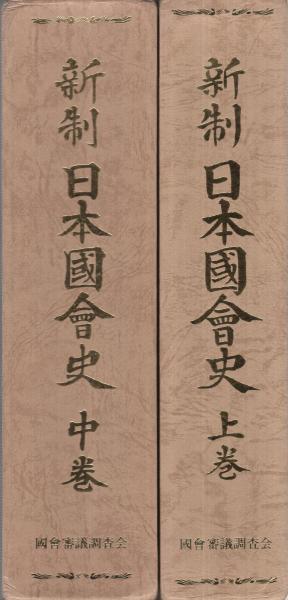 新制日本國會史上巻
國會審議調査会
新制日本國會史中巻
國會審議調査会